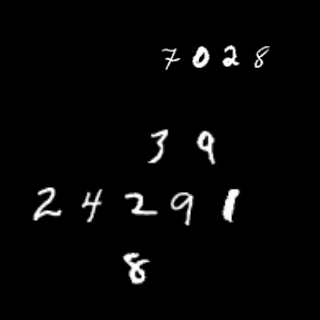 7028
39
24291
8